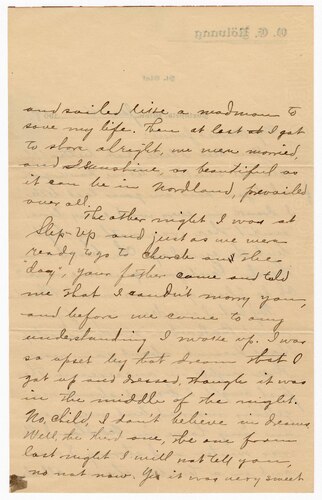 O. E. Rölvaag
and sailed like a madman to
save my life. Then at last I got
to shore alright, we were married,
and sunshine, as beautiful as
it can be in Nordland, prevailed
over all.
The other night I was at
Step-Up and just as we were
ready to go to church and the
"dag", your father came and told
me that I couldn't marry you,
and before we come to any
understanding I woke up. I was
so upset by that dream that I
got up and dressed, though it was
in the middle of the night.
No, child, I don't believe in dreams
Well, the third one, the one from
last night I will not tell you,
no not now. Yes it was very sweet